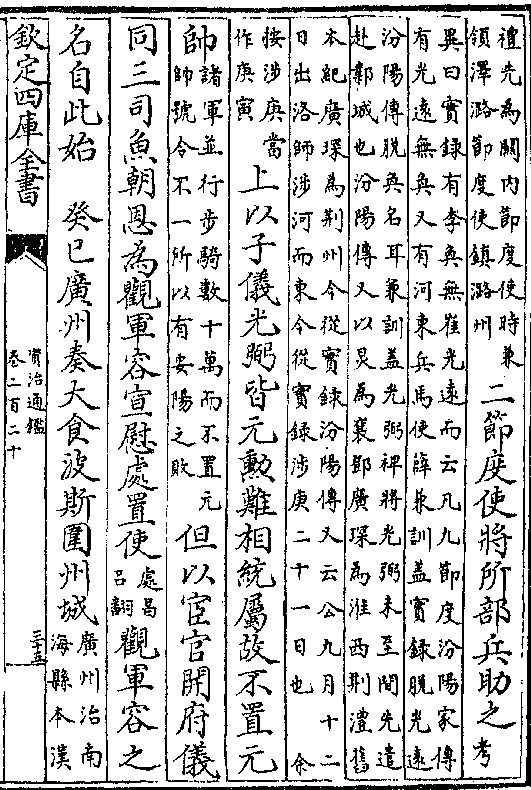 禮先為關内節度使時兼
領澤潞節度使鎮潞州
二節度使將所部兵助之
考
異曰實録有李奐無崔光遠而云凡九節度汾陽家傳
有光遠無奐又有河東兵馬使薛兼訓盖實録脱光遠
汾陽傳脱奐名耳兼訓盖光弼裨將光弼未至間先遣
赴鄴城也汾陽傳又以炅為襄鄧廣琛為淮西荆澧舊
本紀廣琛為荆州今從實録汾陽傳又云公九月十二
日出洛師涉河而東今從實録涉庚二十一日也 余
按涉庚當
作庚寅
上以子儀光弼皆元勳難相統屬故不置元
帥
諸軍並行步騎數十萬而不置元
帥號令不一所以有安陽之敗
但以宦官開府儀
同三司魚朝恩為觀軍容宣慰處置使
處昌
吕翻
觀軍容之
名自此始 癸巳廣州奏大食波斯圍州城
廣州治南
海縣本漢
欽定四庫全書
資治通鑑
卷二百二十
三十五